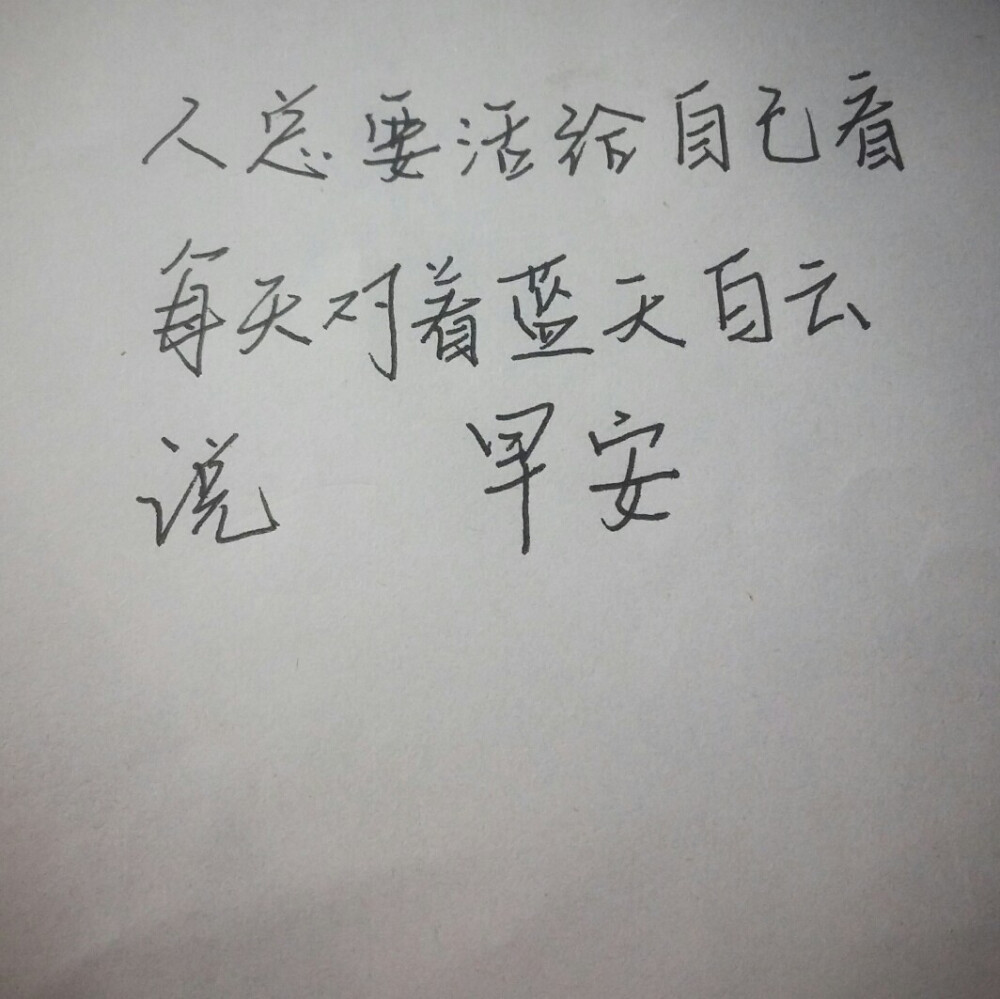 人总要活给自己看
每天对着蓝天白云
说 早安